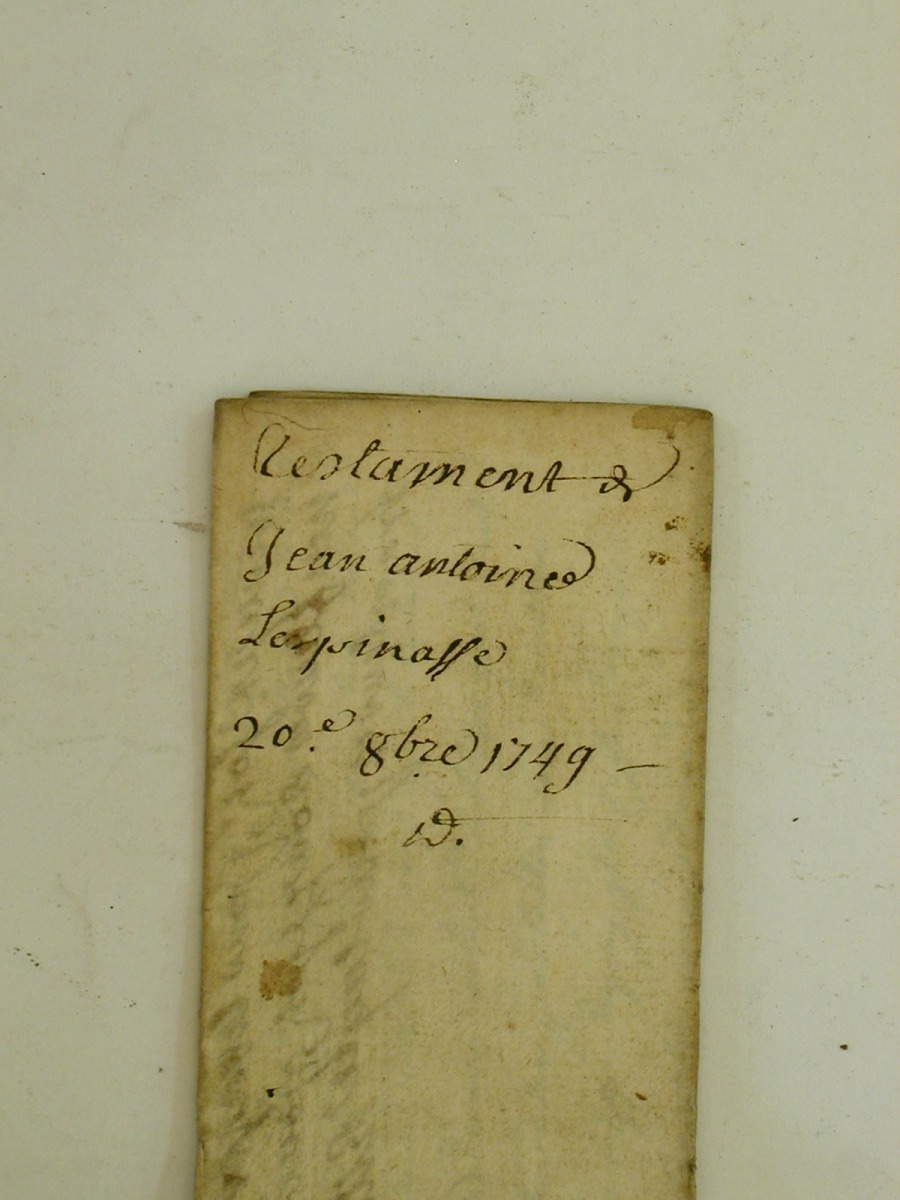 Testament de
Jean antoine
Lespinasse
20.e 8bre 1749 —